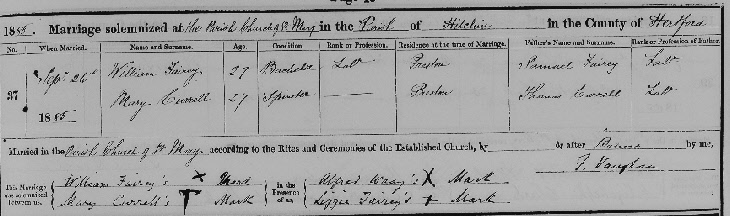 1885. Marriage solemnized at the Parish Church of St Mary in the Parish of Hitchin in the County of Hertford
No. When Married. Name and Surname. Age. Condition Rank or Profession. Residence at the time of Marriage. Father's Name and Surname. Rank or Profession of Father.
37 Sept. 26th 1885 William Fairey 27 Bachelor Labr Preston Samuel Fairey Labr
Mary Currell 27 Spinster — Preston Thomas Currell Labr
Married in the Parish Church of St Mary according to the Rites and Ceremonies of the Established Church, by or after Banns by me,
F. Vaughan
This Marriage was solemnized between us, William Fairey's X Mark
Mary Currell's Mark
In the Presence of us, Alfred X Mark
Lizzie Fairey's + Mark